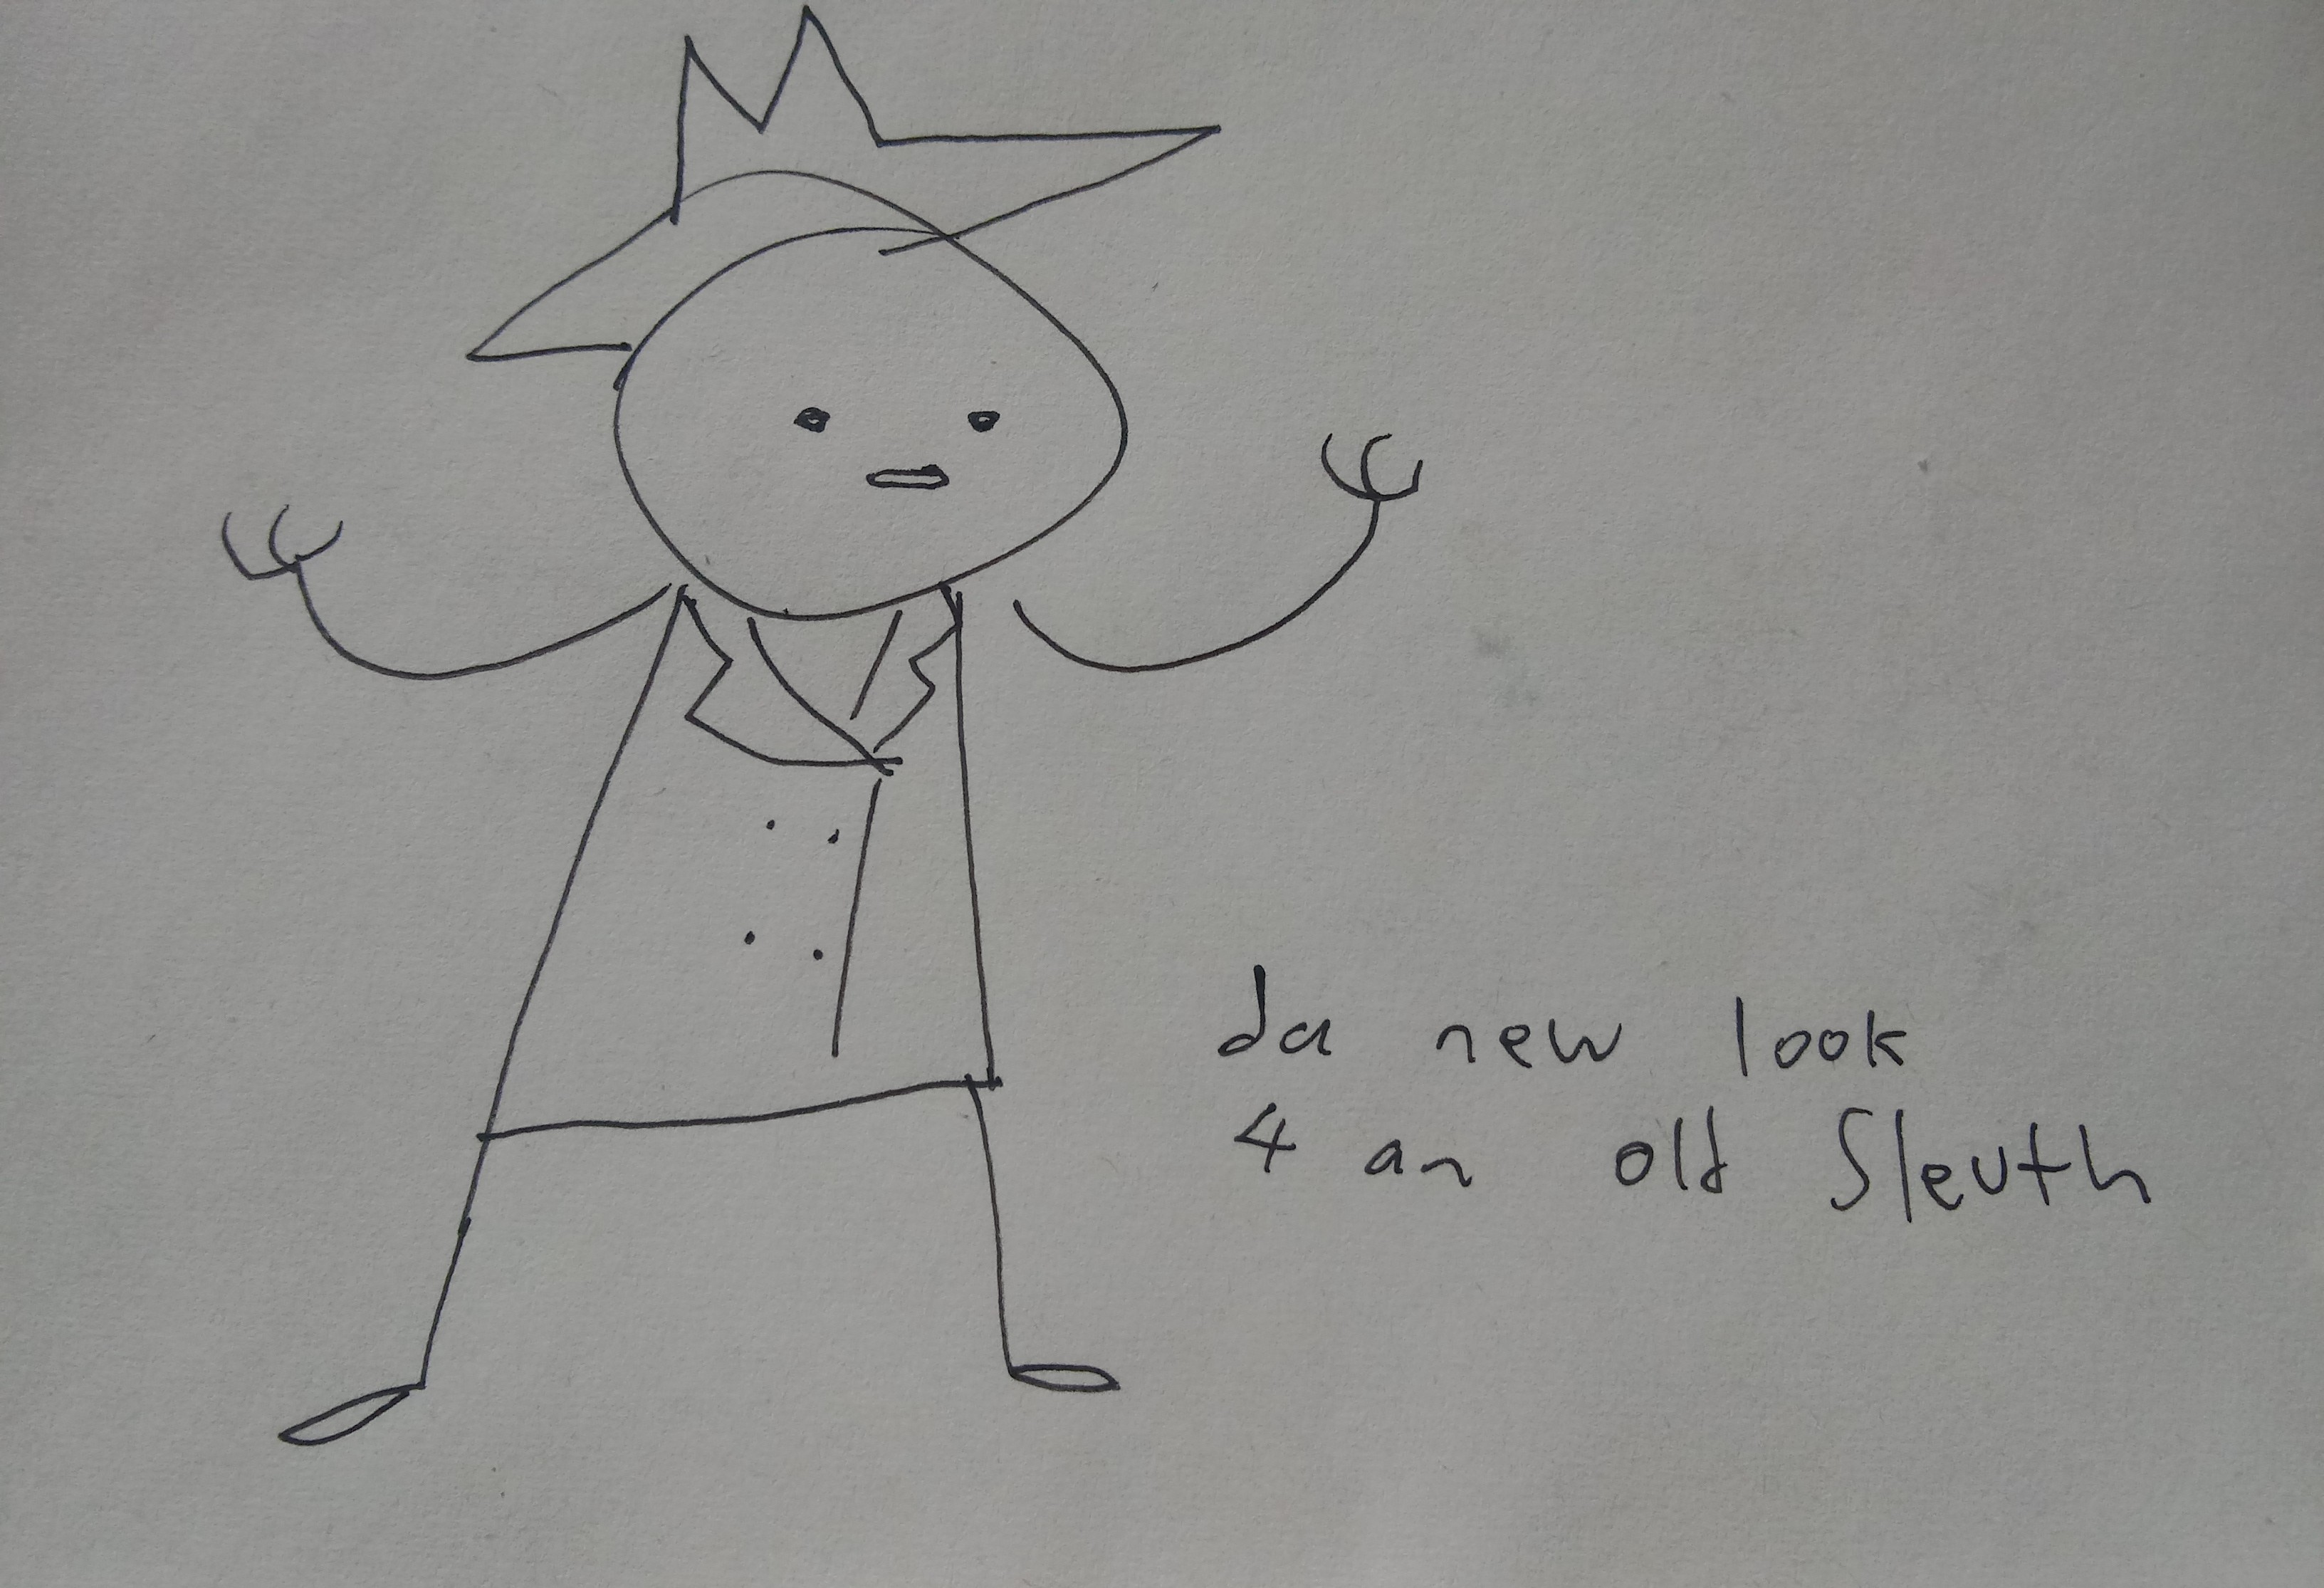 da new look
4 an old Sleuth